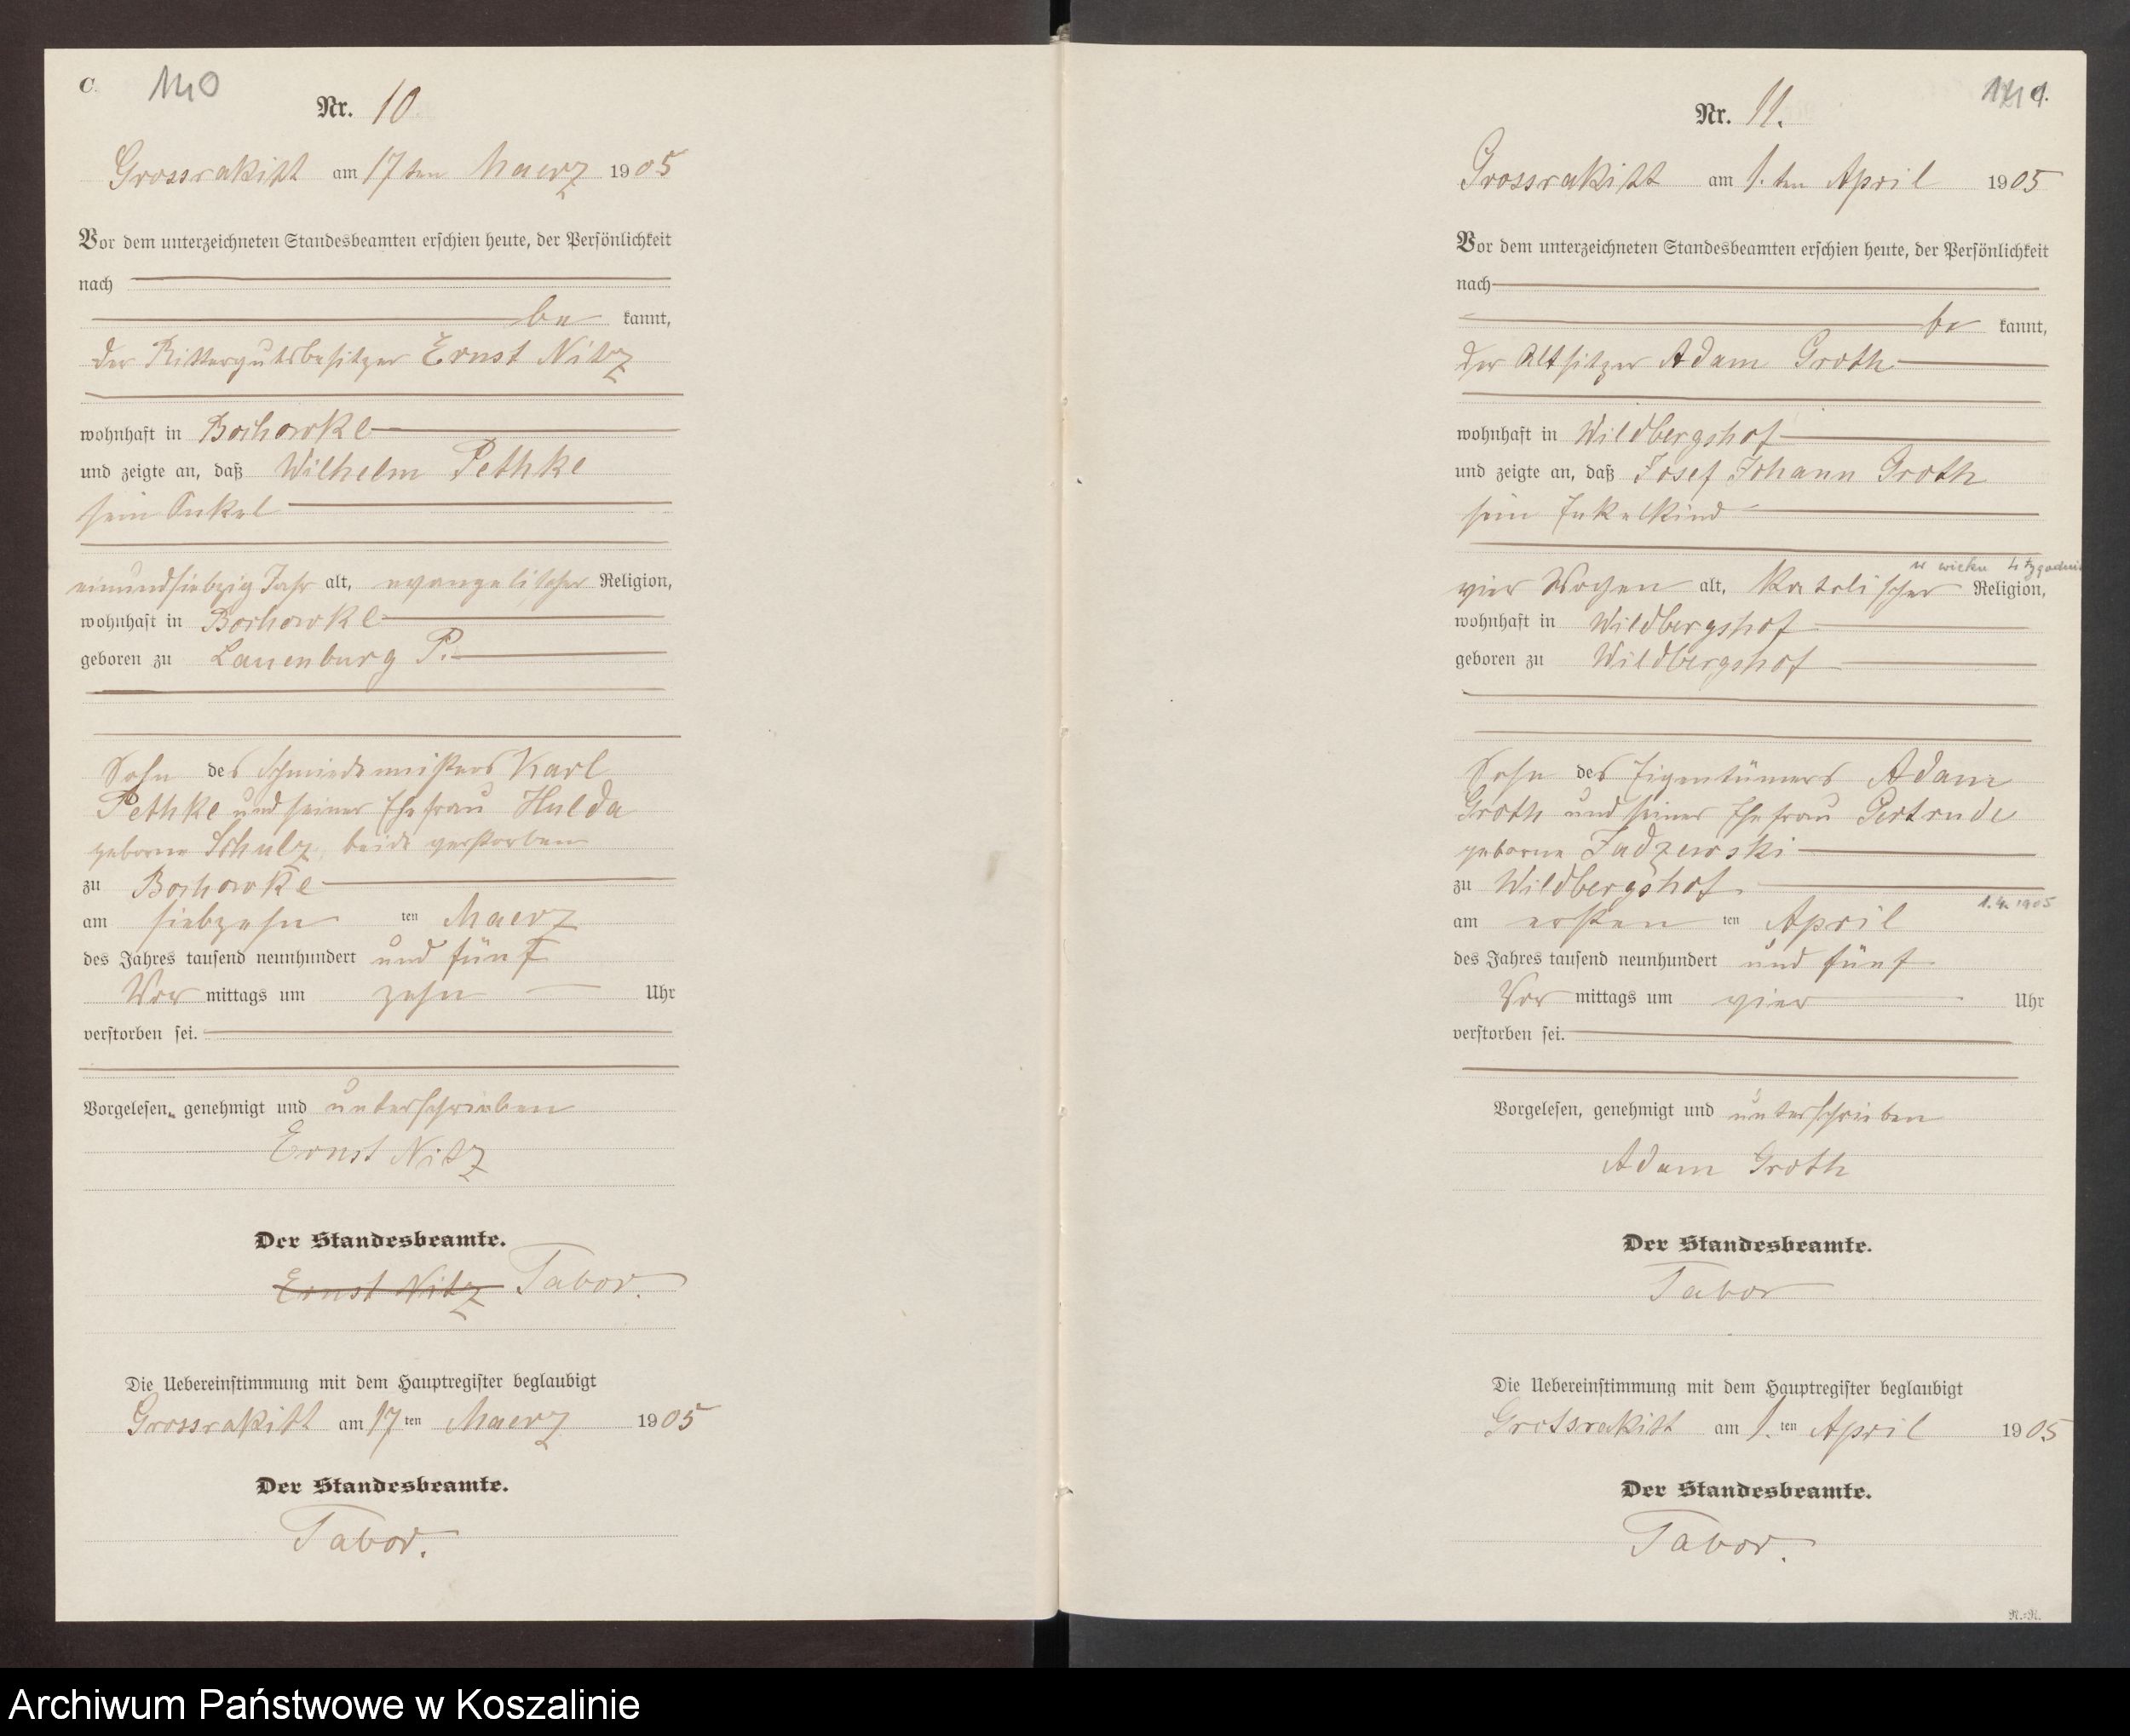 C. 140
Nr. 10
Grossrakitt am 17ten Maerz 1905
Vor dem unterzeichneten Standesbeamten erschien heute, der Persönlichkeit
nach
be kannt,
der Rittergutsbesitzer Ernst Nitz
wohnhaft in Bochowke
und zeigte an, daß Wilhelm Pethke
sein Onkel
einundsiebzig Jahr alt, evangelischer Religion,
wohnhaft in Bochowke
geboren zu Lauenburg P.
Sohn des Schmiedemeisters Karl
Pethke und seiner Ehefrau Hulda
geborne Schulz, beide verstorben
zu Bochowke
am siebzehn ten Maerz
des Jahres tausend neunhundert und fünf
Vor mittags um zehn Uhr
verstorben sei.
Vorgelesen, genehmigt und unterschrieben
Ernst Nitz
Der Standesbeamte.
Ernst Nitz Tabor.
Die Uebereinstimmung mit dem Hauptregister beglaubigt
Grossrakitt am 17 ten Maerz 1905
Der Standesbeamte.
Tabor.
141 C.
Nr. 11.
Grossrakitt am 1. ten April 1905
Vor dem unterzeichneten Standesbeamten erschien heute, der Persönlichkeit
nach
be kannt,
der Altsitzer Adam Groth
wohnhaft in Wildbergshof
und zeigte an, daß Josef Johann Groth
sein Enkelkind
w wieku 4 tygodni
vier Wochen alt, Katolischer Religion,
wohnhaft in Wildbergshof
geboren zu Wildbergshof
Sohn des Eigentümers Adam
Groth und seiner Ehefrau Gertrude
geborne Jadzewski
zu Wildbergshof
1.4.1905
am ersten ten April
des Jahres tausend neunhundert und fünf
Vor mittags um vier Uhr
verstorben sei.
Vorgelesen, genehmigt und unterschrieben
Adam Groth
Der Standesbeamte.
Tabor
Die Uebereinstimmung mit dem Hauptregister beglaubigt
Grossrakitt am 1. ten April 1905
Der Standesbeamte.
Tabor.
R.=R.
Archiwum Państwowe w Koszalinie